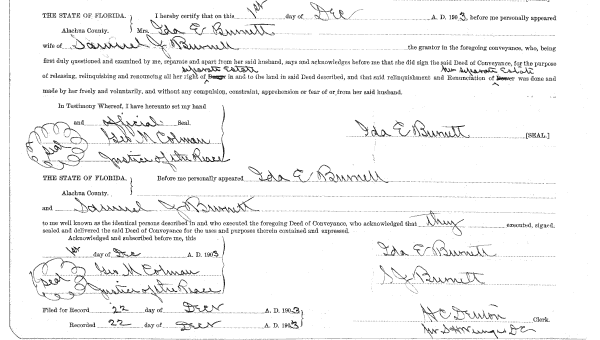 THE STATE OF FLORIDA. } I hereby certify that on this 1st day of Dec A. D. 1903, before me personally appeared
Alachua County. Mrs. Ida E Burnett
wife of Samuel J Burnett the grantor in the foregoing conveyance, who, being
first duly questioned and examined by me, separate and apart from her said husband, says and acknowledges before me that she did sign the said Deed of Conveyance, for the purpose
separate Estate her separate Estate
of releasing, relinquishing and renouncing all her right of Dower in and to the land in said Deed described, and that said relinquishment and Renunciation of Dower was done and
made by her freely and voluntarily, and without any compulsion, constraint, apprehension or fear of or from her said husband.
In Testimony Whereof, I have hereunto set my hand
and official Seal.
Seal Geo M Colman Ida E Burnett [SEAL.]
Justice of the Peace
THE STATE OF FLORIDA. } Before me personally appeared Ida E Burnett
Alachua County.
and Samuel J Burnett
to me well known as the identical persons described in and who executed the foregoing Deed of Conveyance, who acknowledged that they executed, signed,
sealed and delivered the said Deed of Conveyance for the uses and purposes therein contained and expressed.
Acknowledged and subscribed before me, this
1st day of Dec A. D. 1903 Ida E Burnett
Seal Geo M Colman S J Burnett
Justice of the Peace
Filed for Record 22 day of Decr A. D. 1903 H C Denton Clerk.
Recorded 22 day of Decr 1903 D C